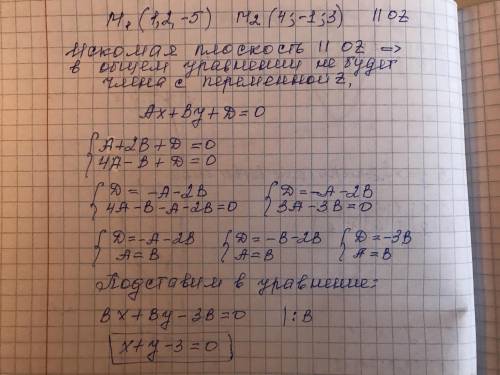 M₁(1,2,-5) M₂(4;-1;3) || OZ
Искомая плоскость || OZ =>
в общем уравнении не будет
члена с переменной Z,
Ax+By+D=0
{A+2B+D=0
{4A-B+D=0
{D=-A-2B {D=-A-2B
{4A-B-A-2B=0 {3A-3B=0
{D=-A-2B {D=-B-2B {D=-3B
{A=B {A=B {A=B
Подставим в уравнение:
Bx+By-3B=0 |:B
x+y-3=0